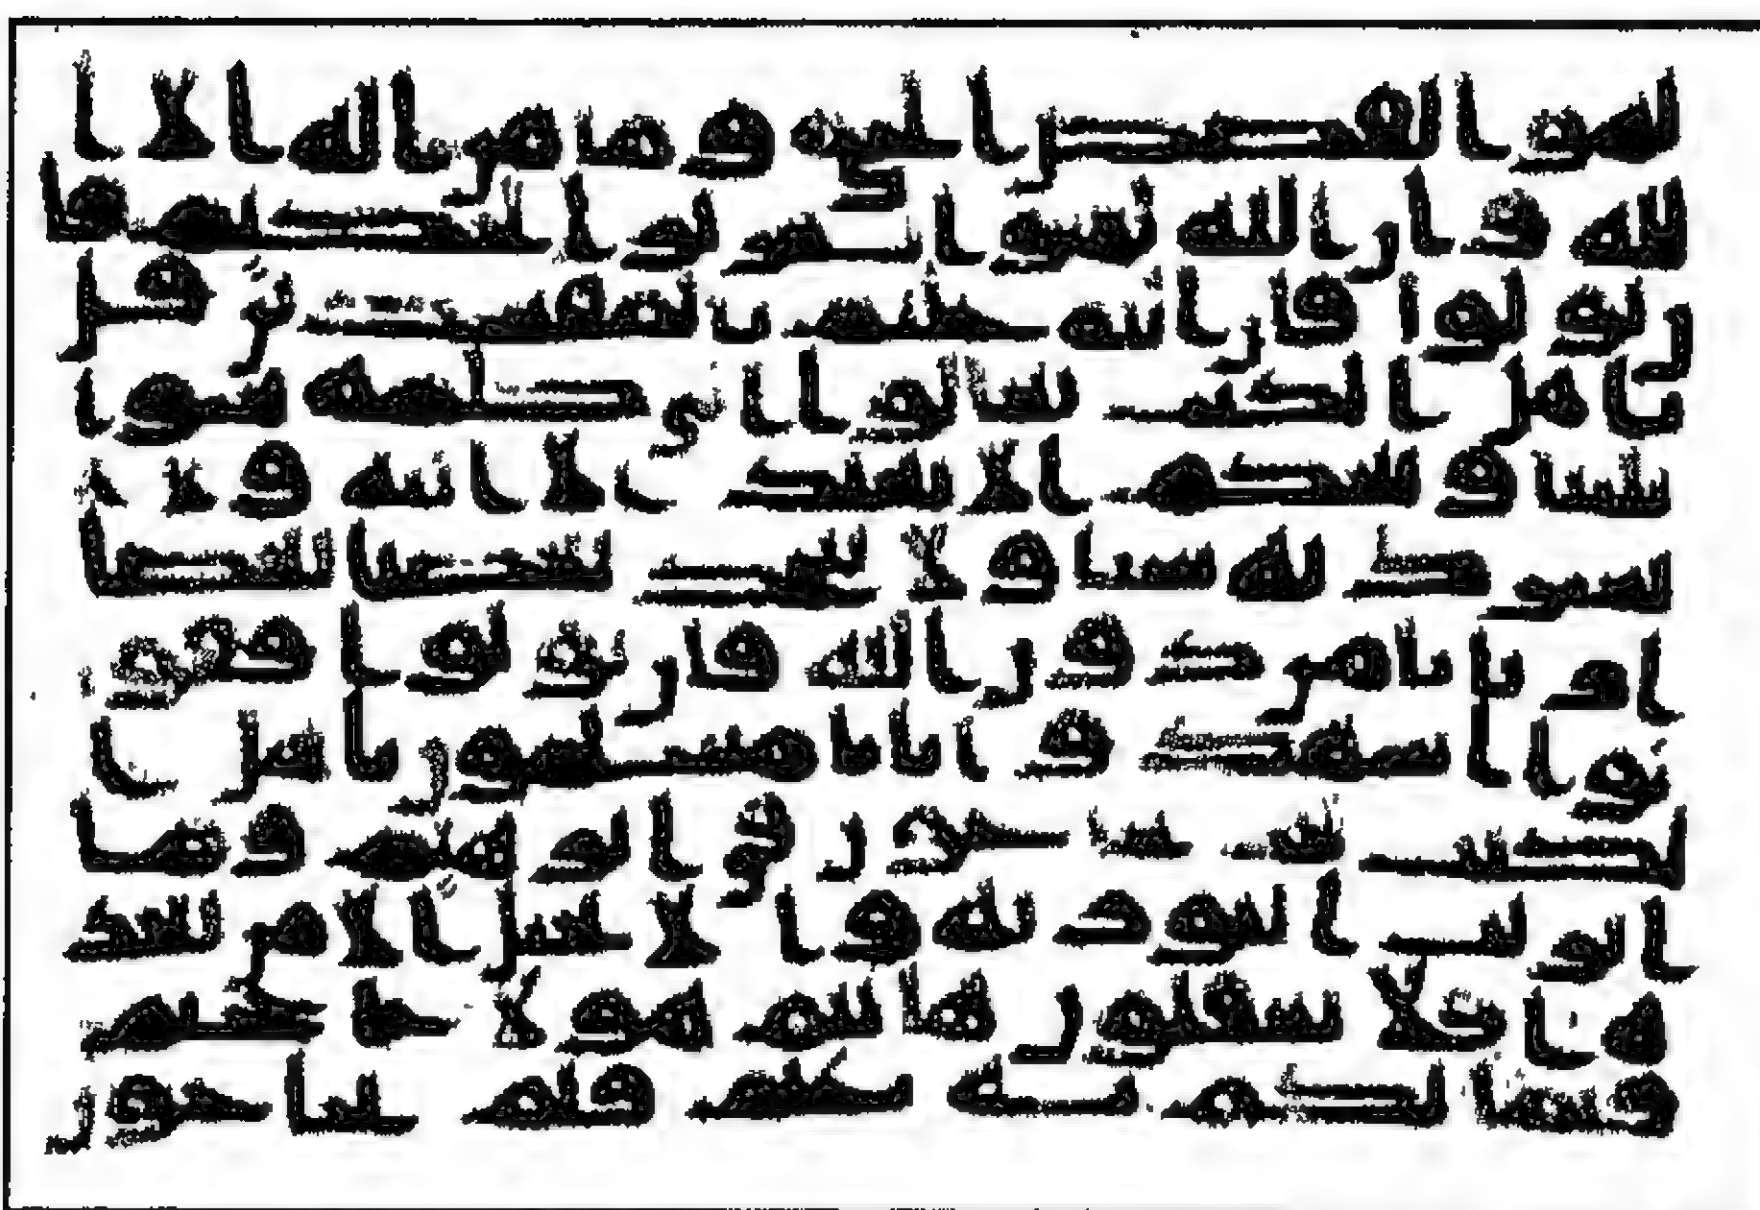 لهو القصص الحق وما من اله الا ا
لله وان الله لهو العزيز الحكيم فا
ن تولوا فان الله عليم بالمفسدين قل
ياهل الكتب تعالوا الى كلمة سوا
بيننا وبينكم الا نعبد الا الله ولا
نشرك به شيا ولا يتخذ بعضنا بعضا
اربابا من دون الله فان تولوا فقو
لوا اشهدوا بانا مسلمون ياهل ا
لكتب لم تحاجون في ابرهيم وما
انزلت التورية والانجيل الا من بعد
ه افلا تعقلون هانتم هولا حججتم
فيما لكم به علم فلم تحاجون